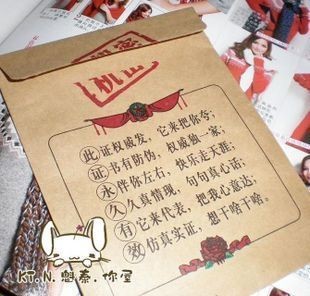 机密
此证权威发，它来把你夸；
证书有防伪，权威独一家；
永伴你左右，快乐走天涯；
久久真情现，句句真心话；
有它来代表，把我心意达；
效仿真实证，想干啥干啥。
KT.N.魁泰.你屋